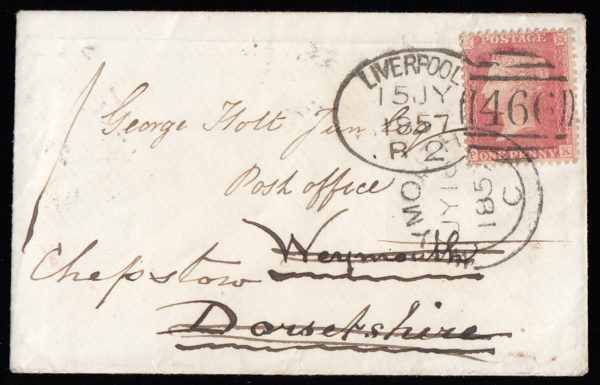 POSTAGE
LIVERPOOL
15 JY
1857
R 2
466
ONE PENNY
K
George Holt Jun Esq
Post office
Weymouth
Chepstow
Dorsetshire
JY 1
185
C